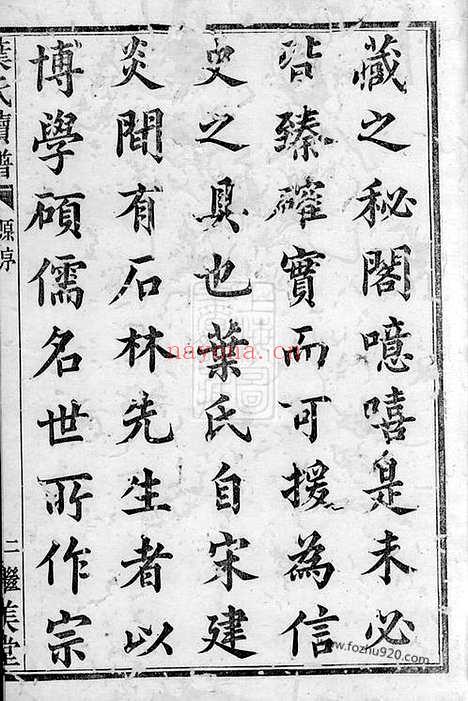 藏之秘閣噫嘻是未必
皆臻確實而可援為信
史之具也葉氏自宋建
炎間有石林先生者以
博學碩儒名世所作宗
葉氏續譜
原序
二
繼美堂
nayona.cn
www.fozhu920.com